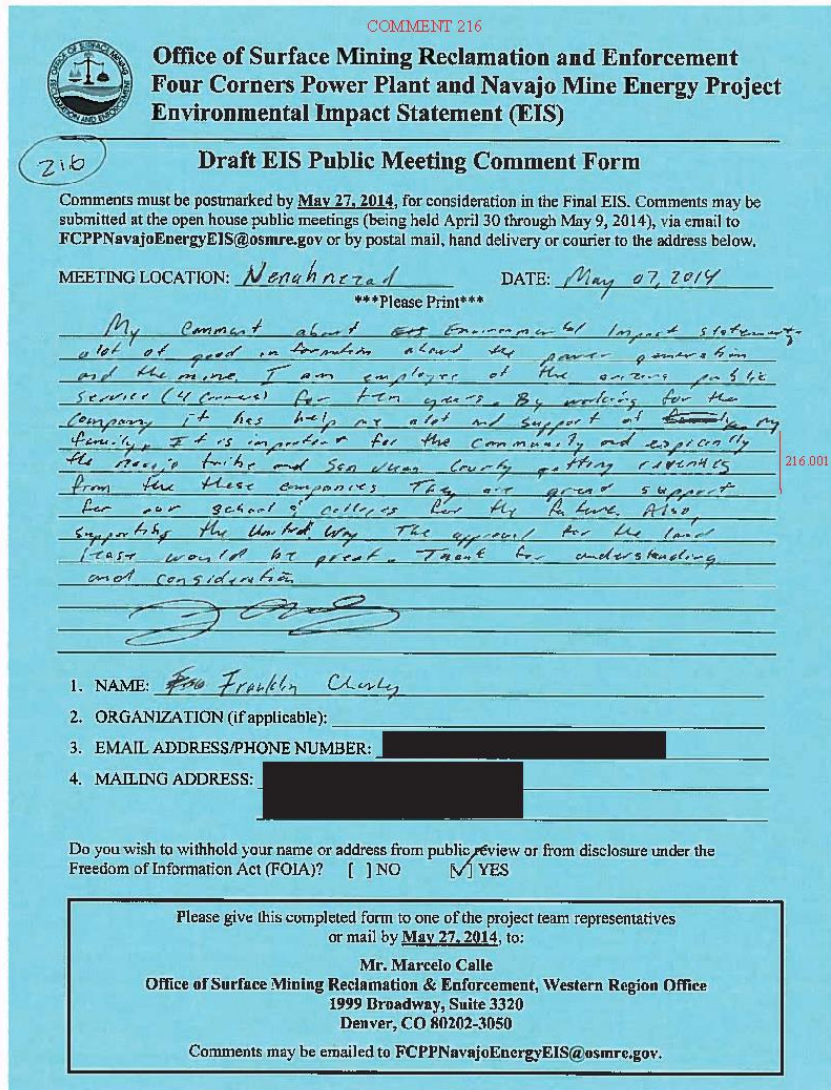 COMMENT 216
Office of Surface Mining Reclamation and Enforcement
Four Corners Power Plant and Navajo Mine Energy Project
Environmental Impact Statement (EIS)
216
Draft EIS Public Meeting Comment Form
Comments must be postmarked by May 27, 2014, for consideration in the Final EIS. Comments may be
submitted at the open house public meetings (being held April 30 through May 9, 2014), via email to
FCPPNavajoEnergyEIS@osmre.gov or by postal mail, hand delivery or courier to the address below.
MEETING LOCATION: Nenahnezad DATE: May 07, 2014
***Please Print***
My Comment about Environmental Impact statements
alot of good information about the power generation
and the mine. I am employee of the arizona public
service (4 Corners) for ten years. By working for the
company it has help me alot and support of my
family. It is important for the community and especially
the navajo tribe and San Juan County getting revenues
216.001
from the these companies They are great support
for our school & colleges for the future. Also,
supporting the United Way. The approval for the land
lease would be great. Thank for understanding
and consideration
1. NAME: Franklin
2. ORGANIZATION (if applicable):
3. EMAIL ADDRESS/PHONE NUMBER:
4. MAILING ADDRESS:
Do you wish to withhold your name or address from public review or from disclosure under the
Freedom of Information Act (FOIA)? [ ] NO [✓] YES
Please give this completed form to one of the project team representatives
or mail by May 27, 2014, to:
Mr. Marcelo Calle
Office of Surface Mining Reclamation & Enforcement, Western Region Office
1999 Broadway, Suite 3320
Denver, CO 80202-3050
Comments may be emailed to FCPPNavajoEnergyEIS@osmre.gov.